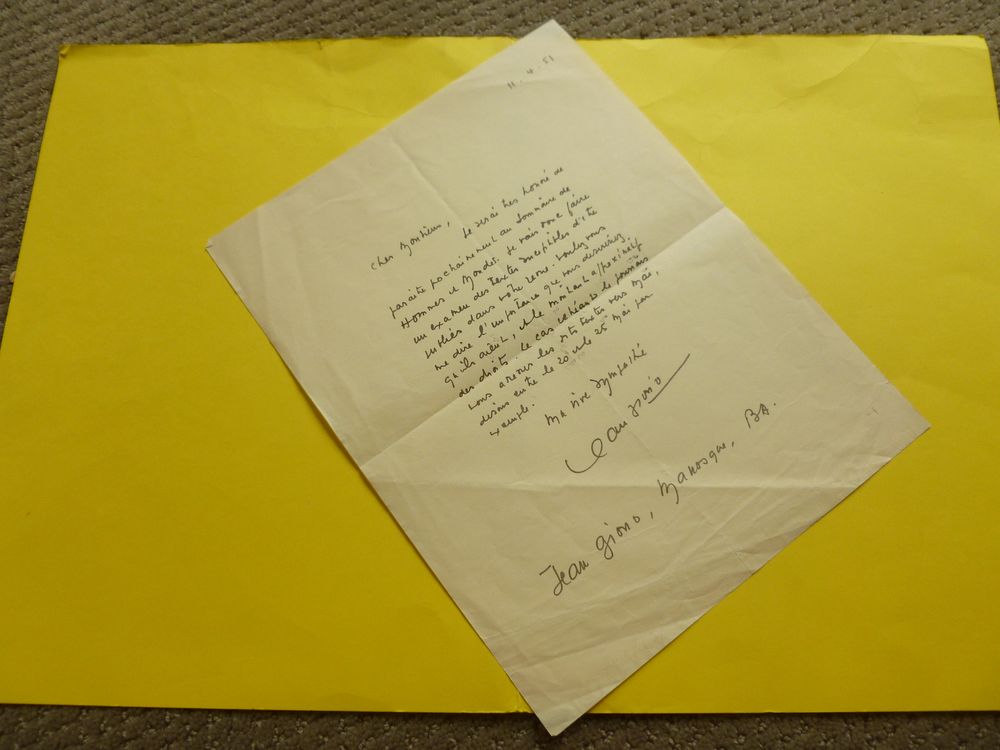 11.4.51
Cher Monsieur, je serai très honoré de
paraître prochainement au sommaire de
Hommes et Mondes. Je vais donc faire
un examen des textes susceptibles d'être
publiés dans votre revue. Voulez vous
me dire l'importance que vous désirez
qu'ils aient, et le montant approximatif
des droits. Le cas échéant je pourrais
vous arenes les textes vers Mai,
disons entre le 20 et le 25 Mai par
exemple.
Ma vive sympathie
Jean Giono
Jean Giono, Manosque, BA.